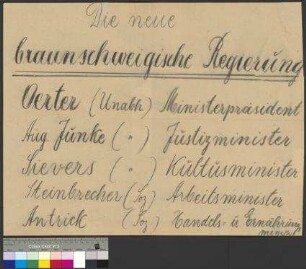 Die neue
braunschweigische Regierung
Oerter (Unabh.) Ministerpräsident
Aug. Junke ( " ) Justizminister
Sievers ( " ) Kultusminister
Steinbrecher (Soz.) Arbeitsminister
Antrick (Soz.) Handels- u Ernährungs
minist.